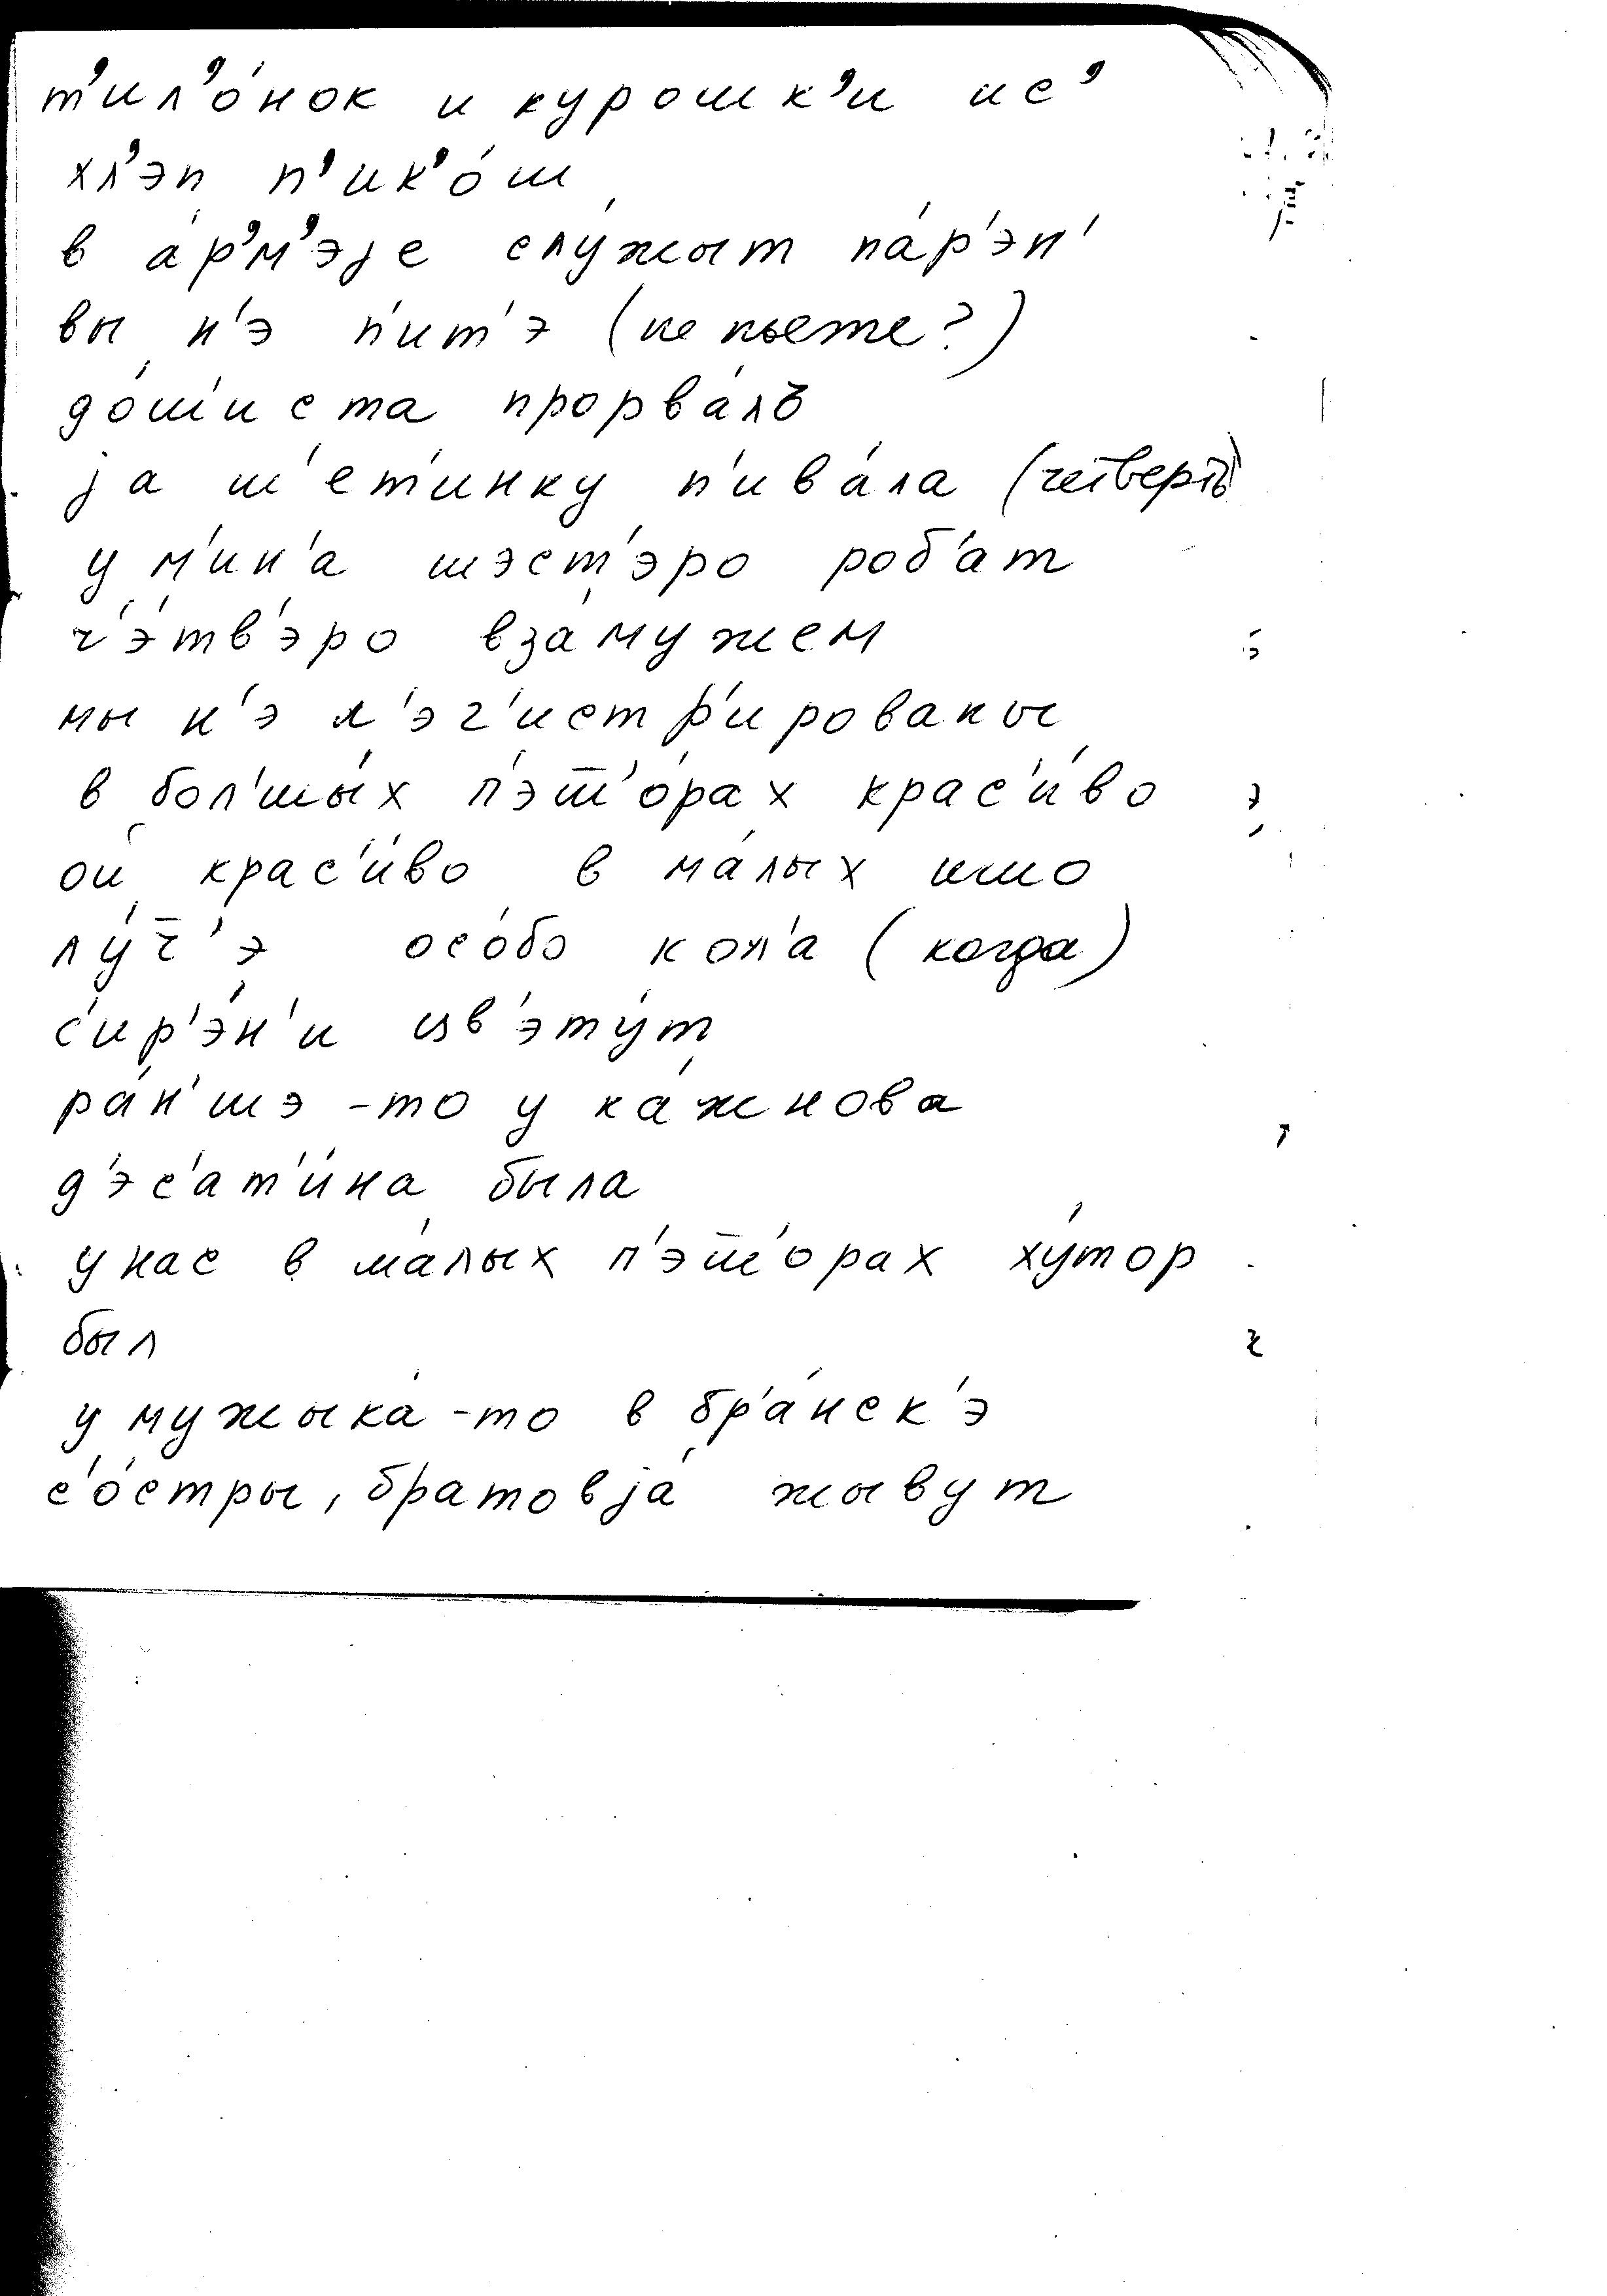 т'ил'о́нок и курошк'и ис'
хл'эп п'ик'о́ш
в а́р'м'эjе слу́жыт па́р'эн'
вы н'э п'ит'э (не пьете?)
до́ш'и ста прорва́лъ
jа ш'ет'инку п'ива́ла (четверть)
у м'ин'а шэст'эро роб'ат
ч'э́тв'эро вза́мужем
мы н'э л'эг'истр'ированы
в бол'шы́х п'эш̅'о́рах крас'и́во
ой крас'и́во в ма́лых ишо
лу́ч̅'э осо́бо кол'а (когда)
с'ир'э́н'и цв'эту́т
ра́н'шэ-то у ка́жнова
д'эс'ат'и́на была
у нас в ма́лых п'эш̅'орах ху́тор
был
у мужыка́-то в бр'а́нск'э
с'о́стры, братовjа́ жывут